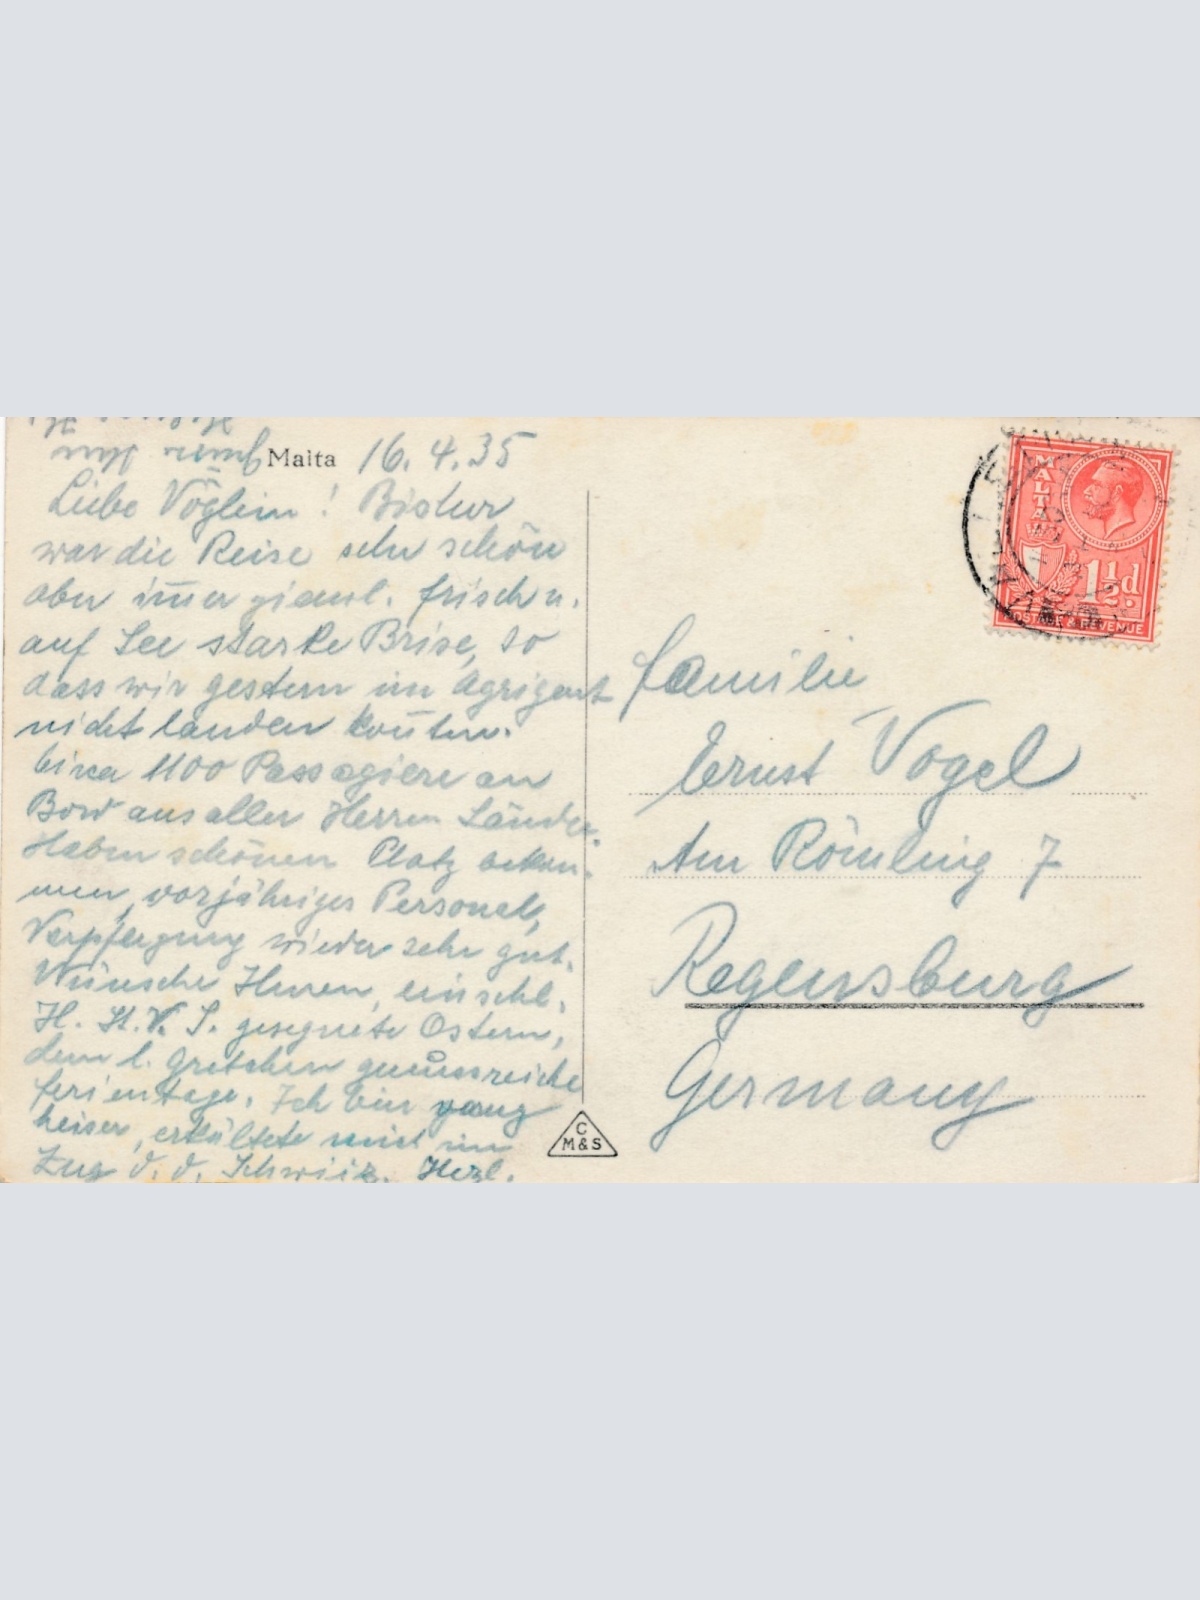 Malta 16.4.35
Liebe Vöglein! Bisher
war die Reise sehr schön
aber im̄er zieml. frisch u.
auf See starke Brise, so
dass wir gestern in Agrigent
nicht landen kon̄ten.
Circa 1100 Passagiere an
Bord aus aller Herren Länder.
Haben schönen Platz bekom-
men, vorjähriges Personal,
Verpflegung wieder sehr gut.
Wünsche Ihnen, einschl.
H. St. V. S. gesegnete Ostern,
dem l. Gretchen genussreiche
Ferientage. Ich bin ganz
heiser, erkältete mich im
Zug d. d. Schweiz. Herzl.
Familie
Ernst Vogel
Am Römling 7
Regensburg
Germany
C
M&S
MALTA
1½d.
POSTAGE & REVENUE